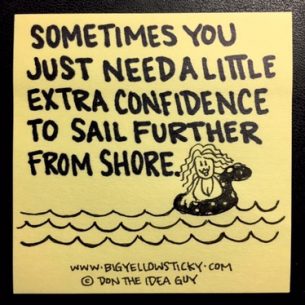 SOMETIMES YOU
JUST NEED A LITTLE
EXTRA CONFIDENCE
TO SAIL FURTHER
FROM SHORE.
WWW.BIGYELLOWSTICKY.COM
© DON THE IDEA GUY